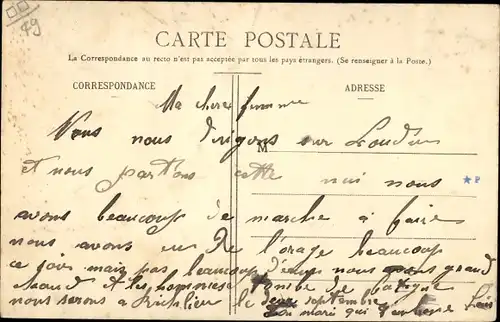 49
CARTE POSTALE
La Correspondance au recto n'est pas acceptée par tous les pays étrangers. (Se renseigner à la Poste.)
CORRESPONDANCE
ADRESSE
Ma chere femme
Nous nous dirigons sur Loudun
M
et nous partons cette nui nous
avons beaucoup de marche a faire
nous avons eu de l'orage beaucoup
ce soir mais pas beaucoup d'eau nous pas grand
chaud et les hommes tombe de fatigue
nous serons a Richelieu le deux septembre
Ton mari qui t'embrasse Louis